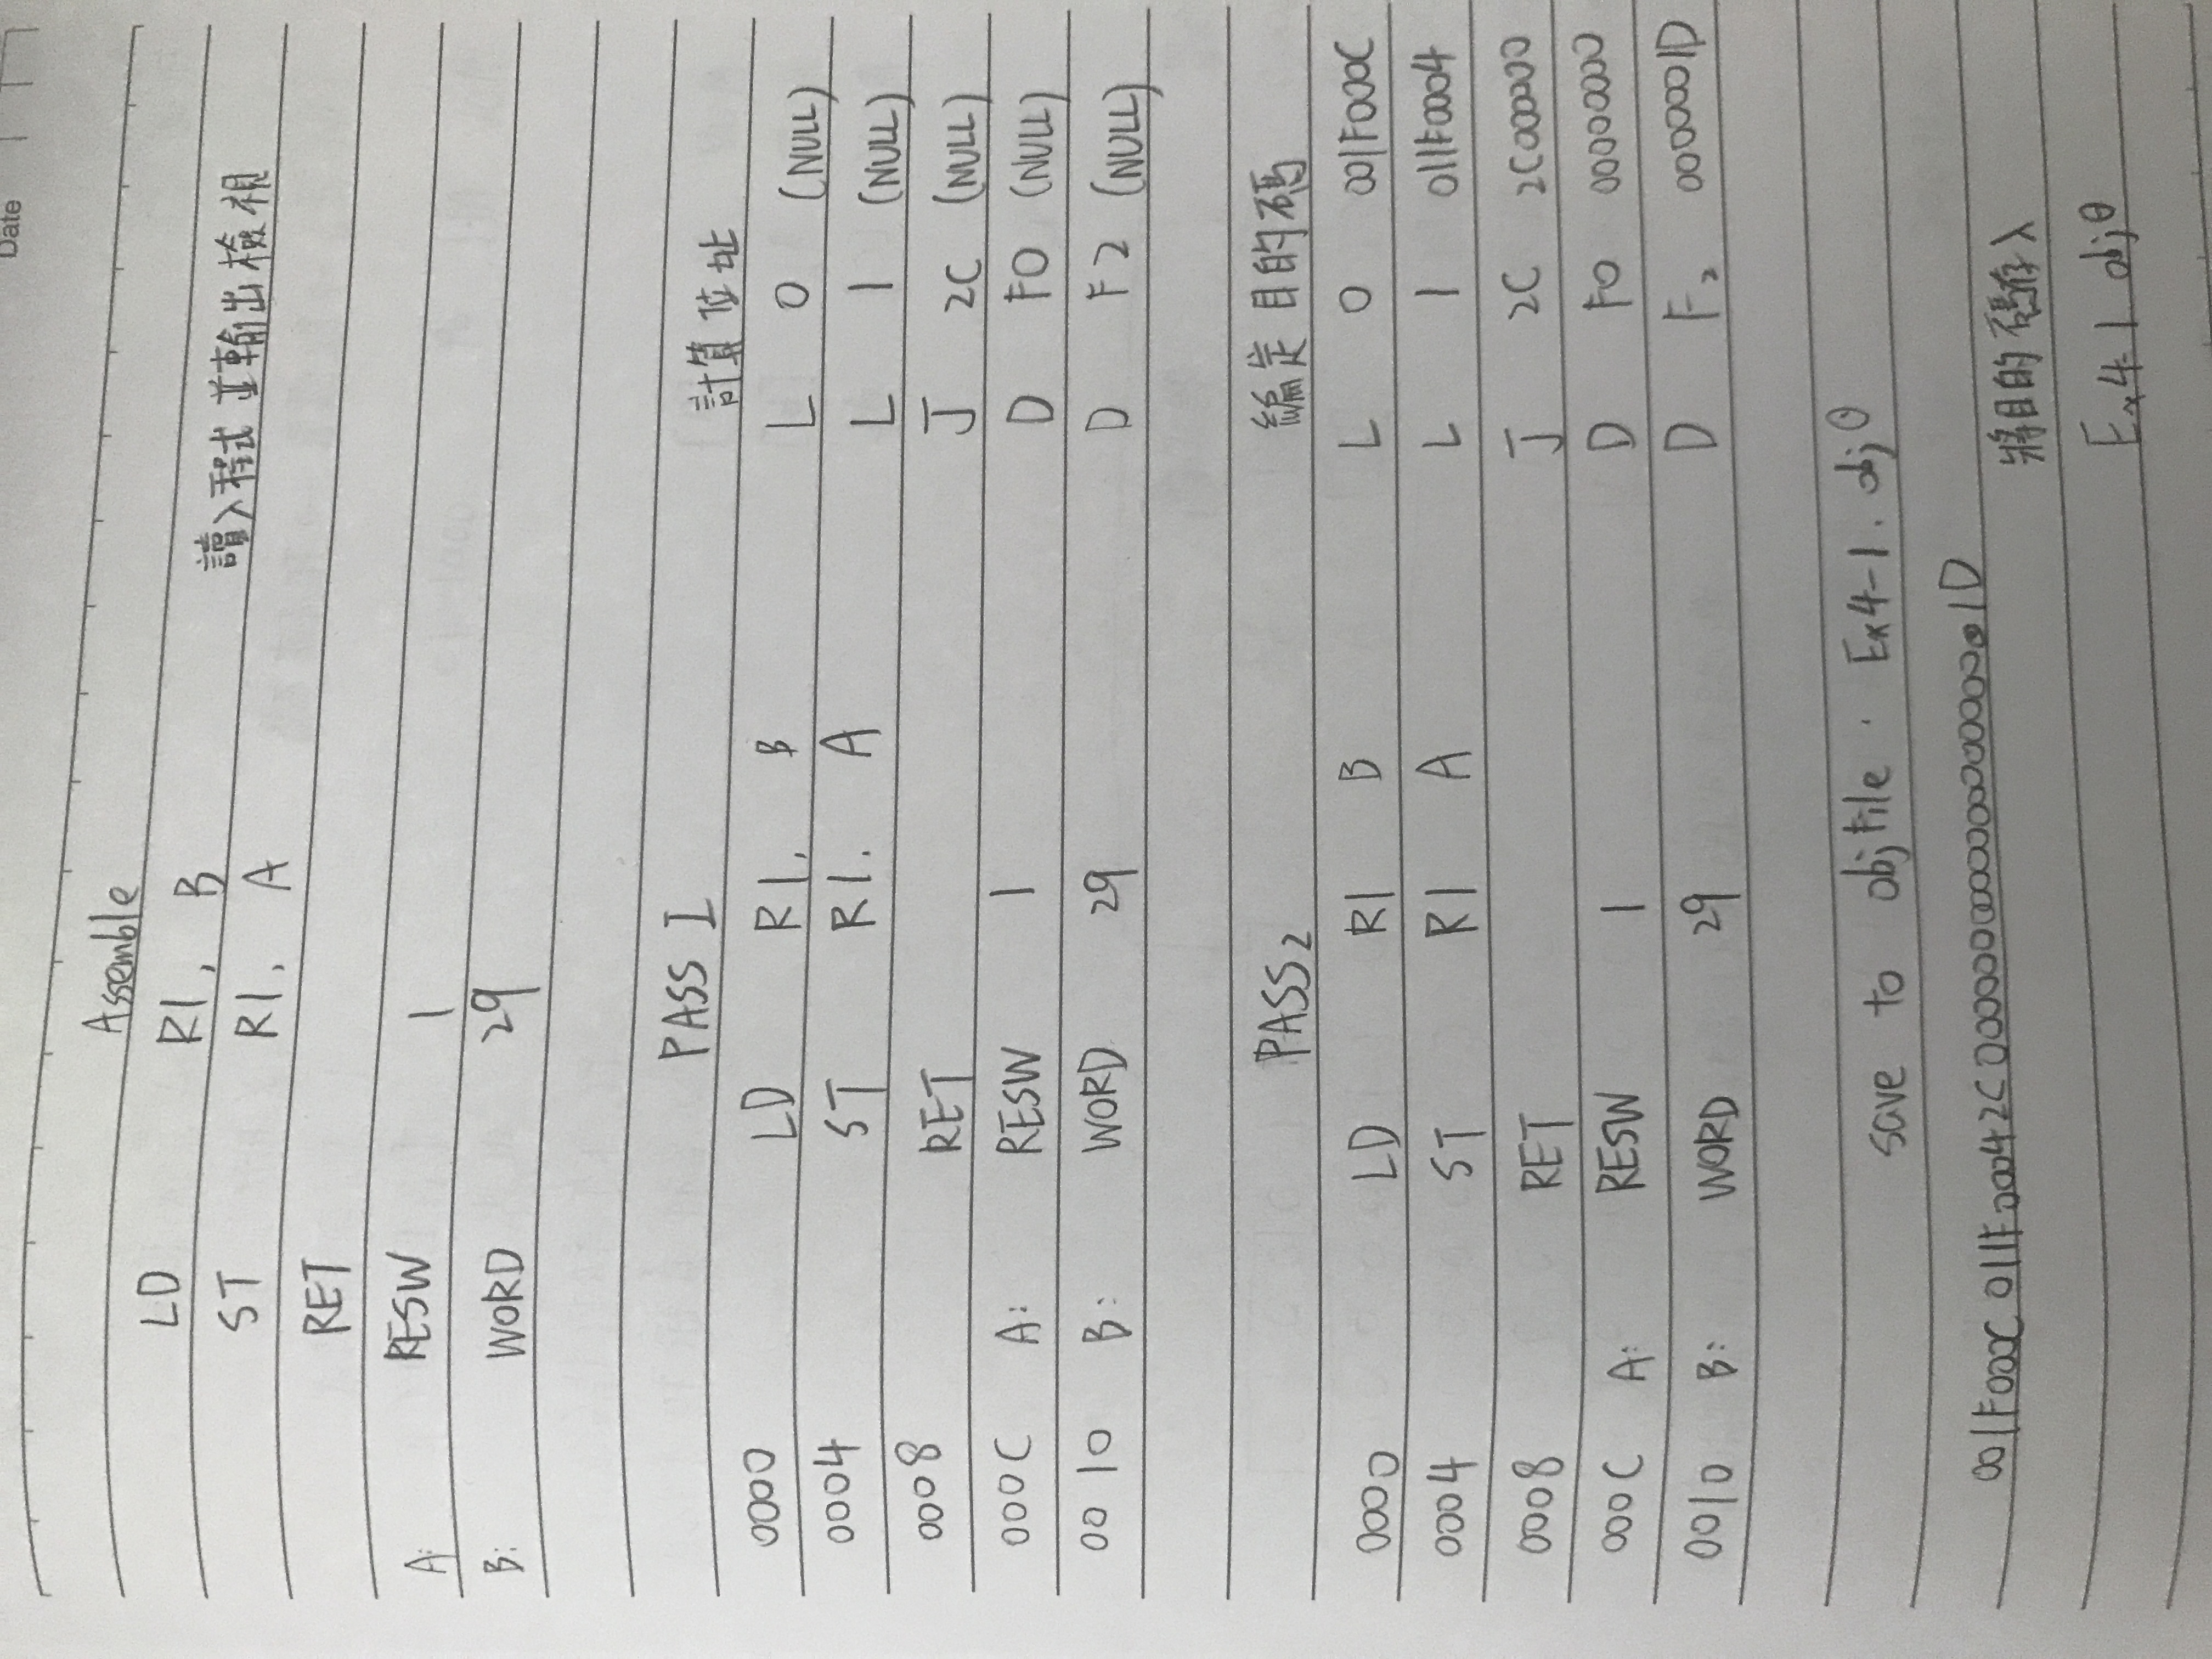 Date
Assemble
LD R1, B
讀入程式並輸出檢視
ST R1, A
RET
A: RESW 1
B: WORD 29
PASS I 計算位址
0000 LD R1, B L 0 (NULL)
0004 ST R1. A L 1 (NULL)
0008 RET J 2C (NULL)
000C A: RESW 1 D F0 (NULL)
0010 B: WORD 29 D F2 (NULL)
PASS2 編定目的碼
0000 LD R1 B L 0 001F000C
0004 ST R1 A L 1 011F0004
0008 RET J 2C 2C000000
000C A: RESW 1 D F0 00000000
0010 B: WORD 29 D F2 0000001D
save to objFile · Ex4-1. obj0
001F000C 011F00042C
將目的碼存入
Ex4-1 obj0